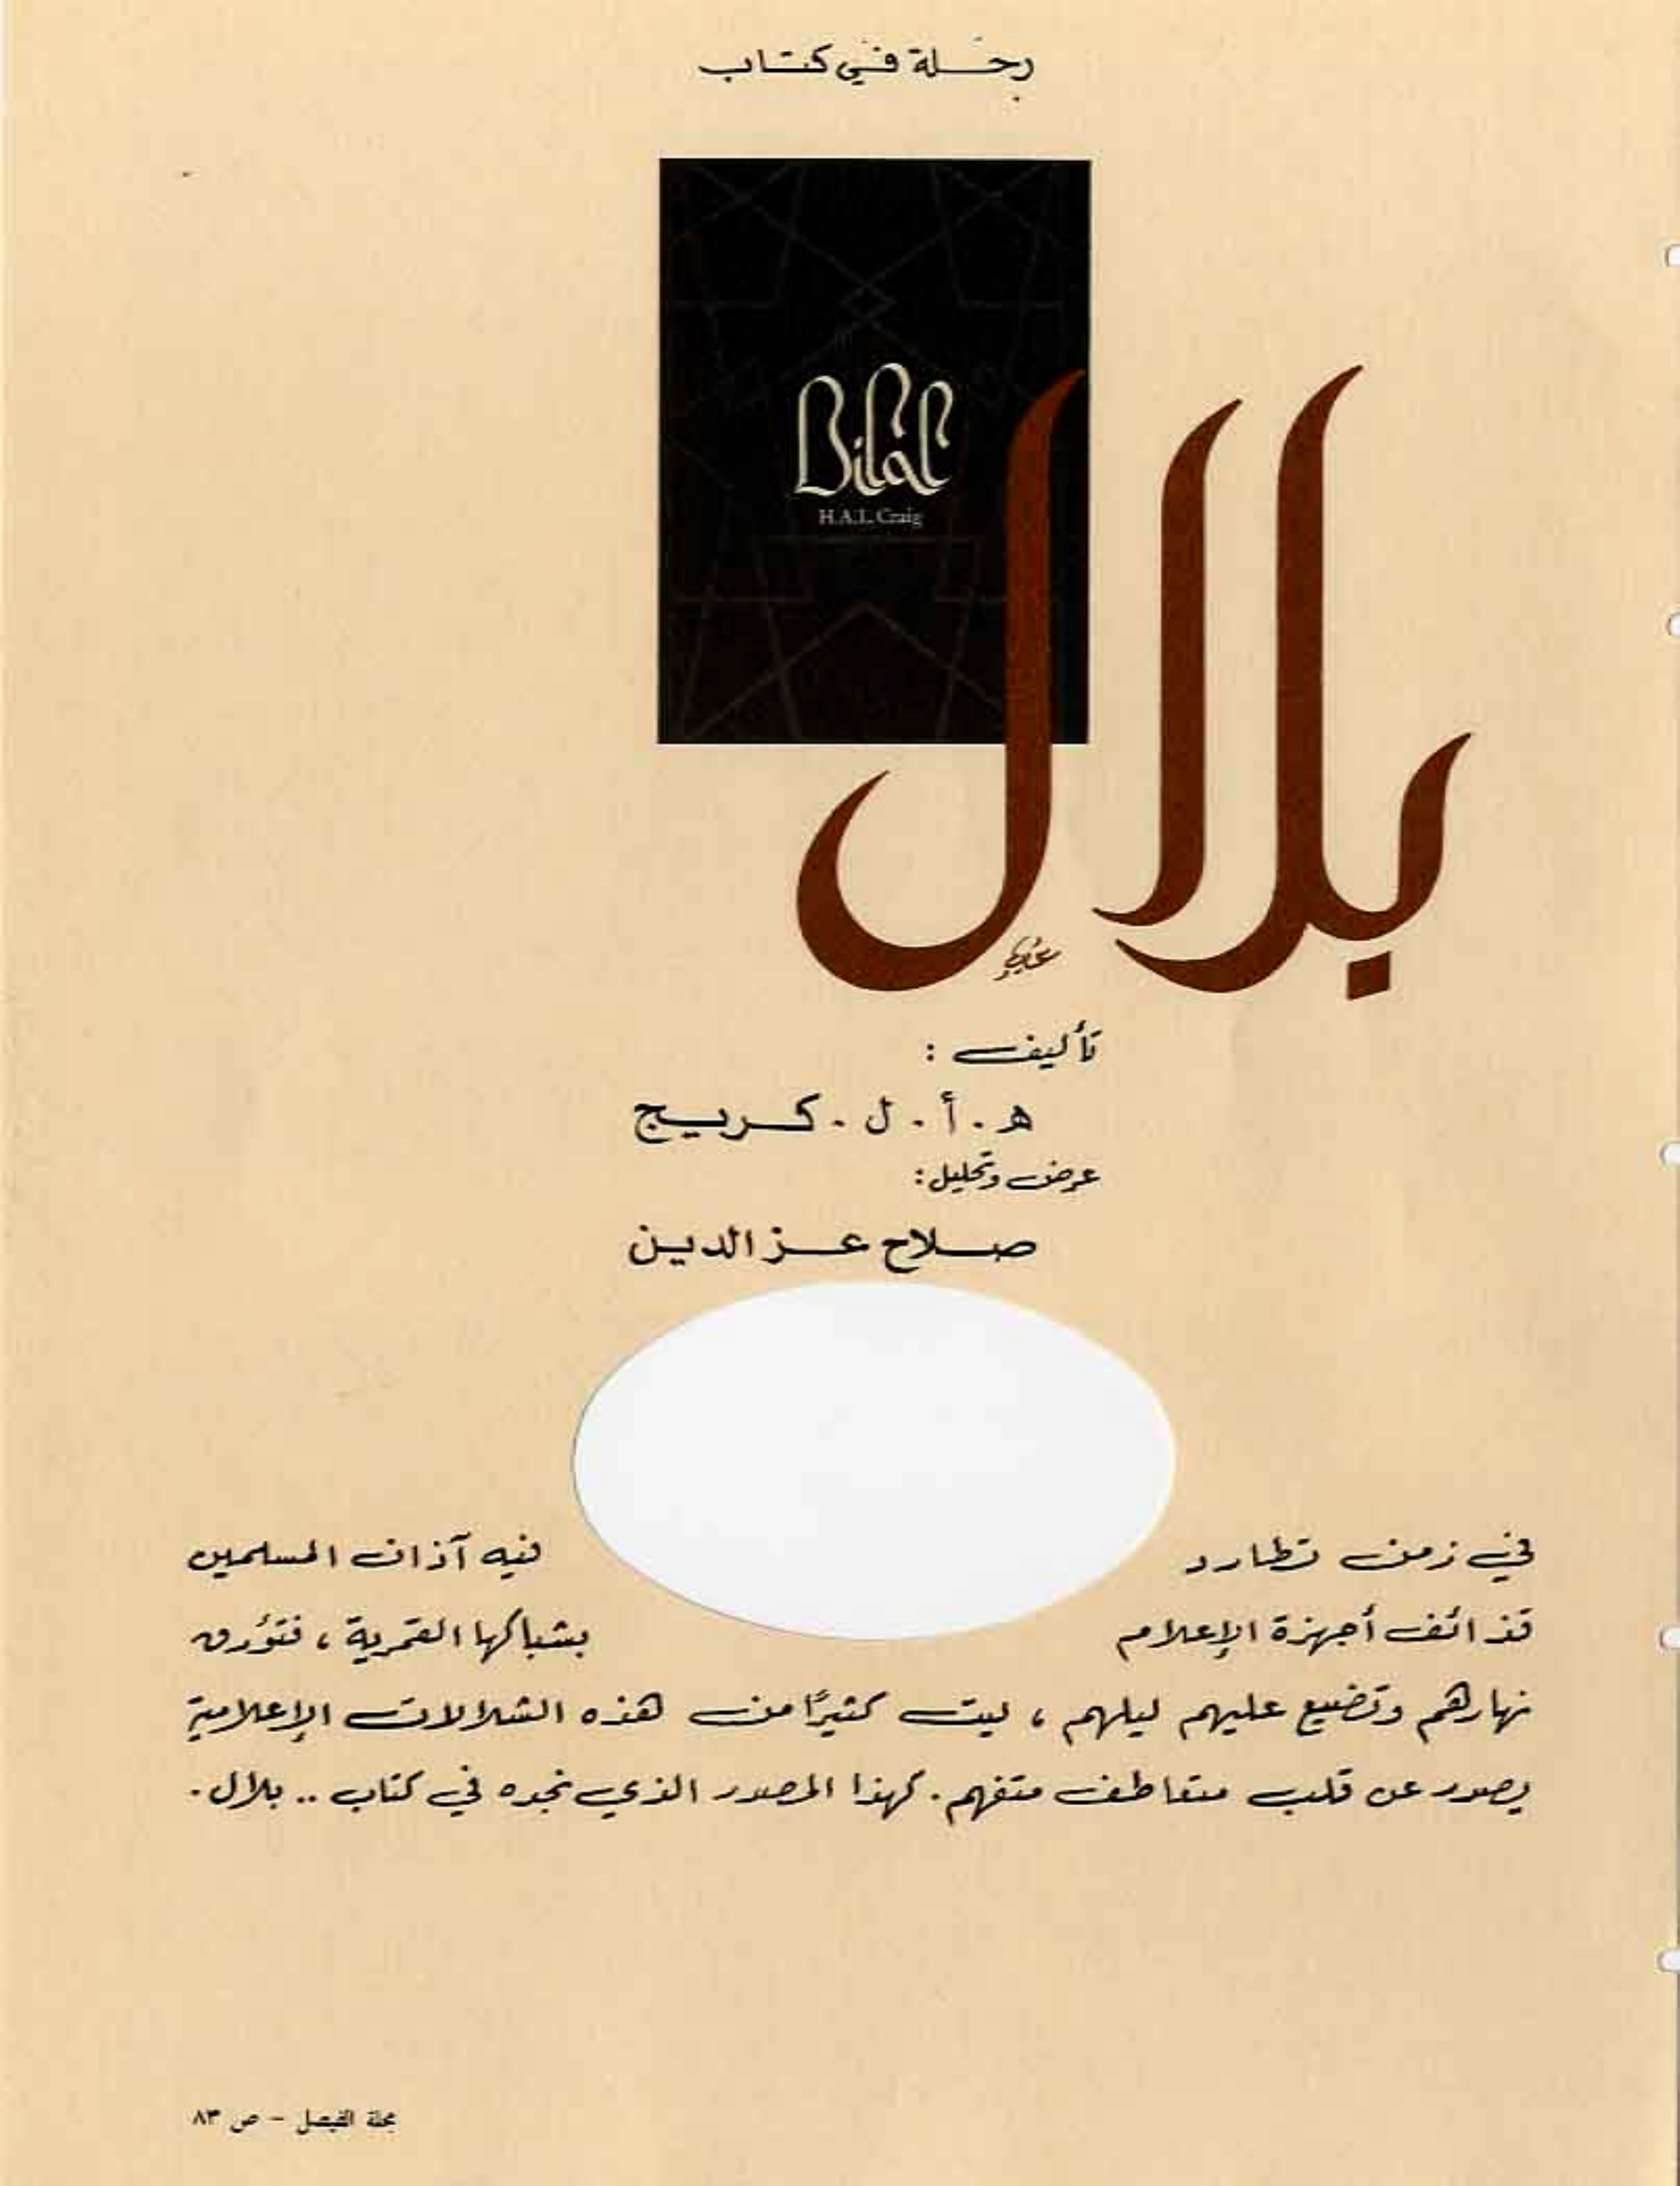 رحلة في كتاب
Bilal
H.A.L. Craig
بلال
تأليف :
ه . أ . ل . كريج
عرض وتحليل :
صلاح عز الدين
في زمن تطارد فيه آذان المسلمين
قذائف أجهزة الإعلام بشباكها القمرية ، فتؤرق
نهارهم وتضيع عليهم ليلهم ، ليت كثيرًا من هذه الشلالات الإعلامية
يصدر عن قلب متعاطف متفهم . كهذا المصدر الذي نجده في كتاب .. بلال .
مجلة الفيصل - ص ٨٣